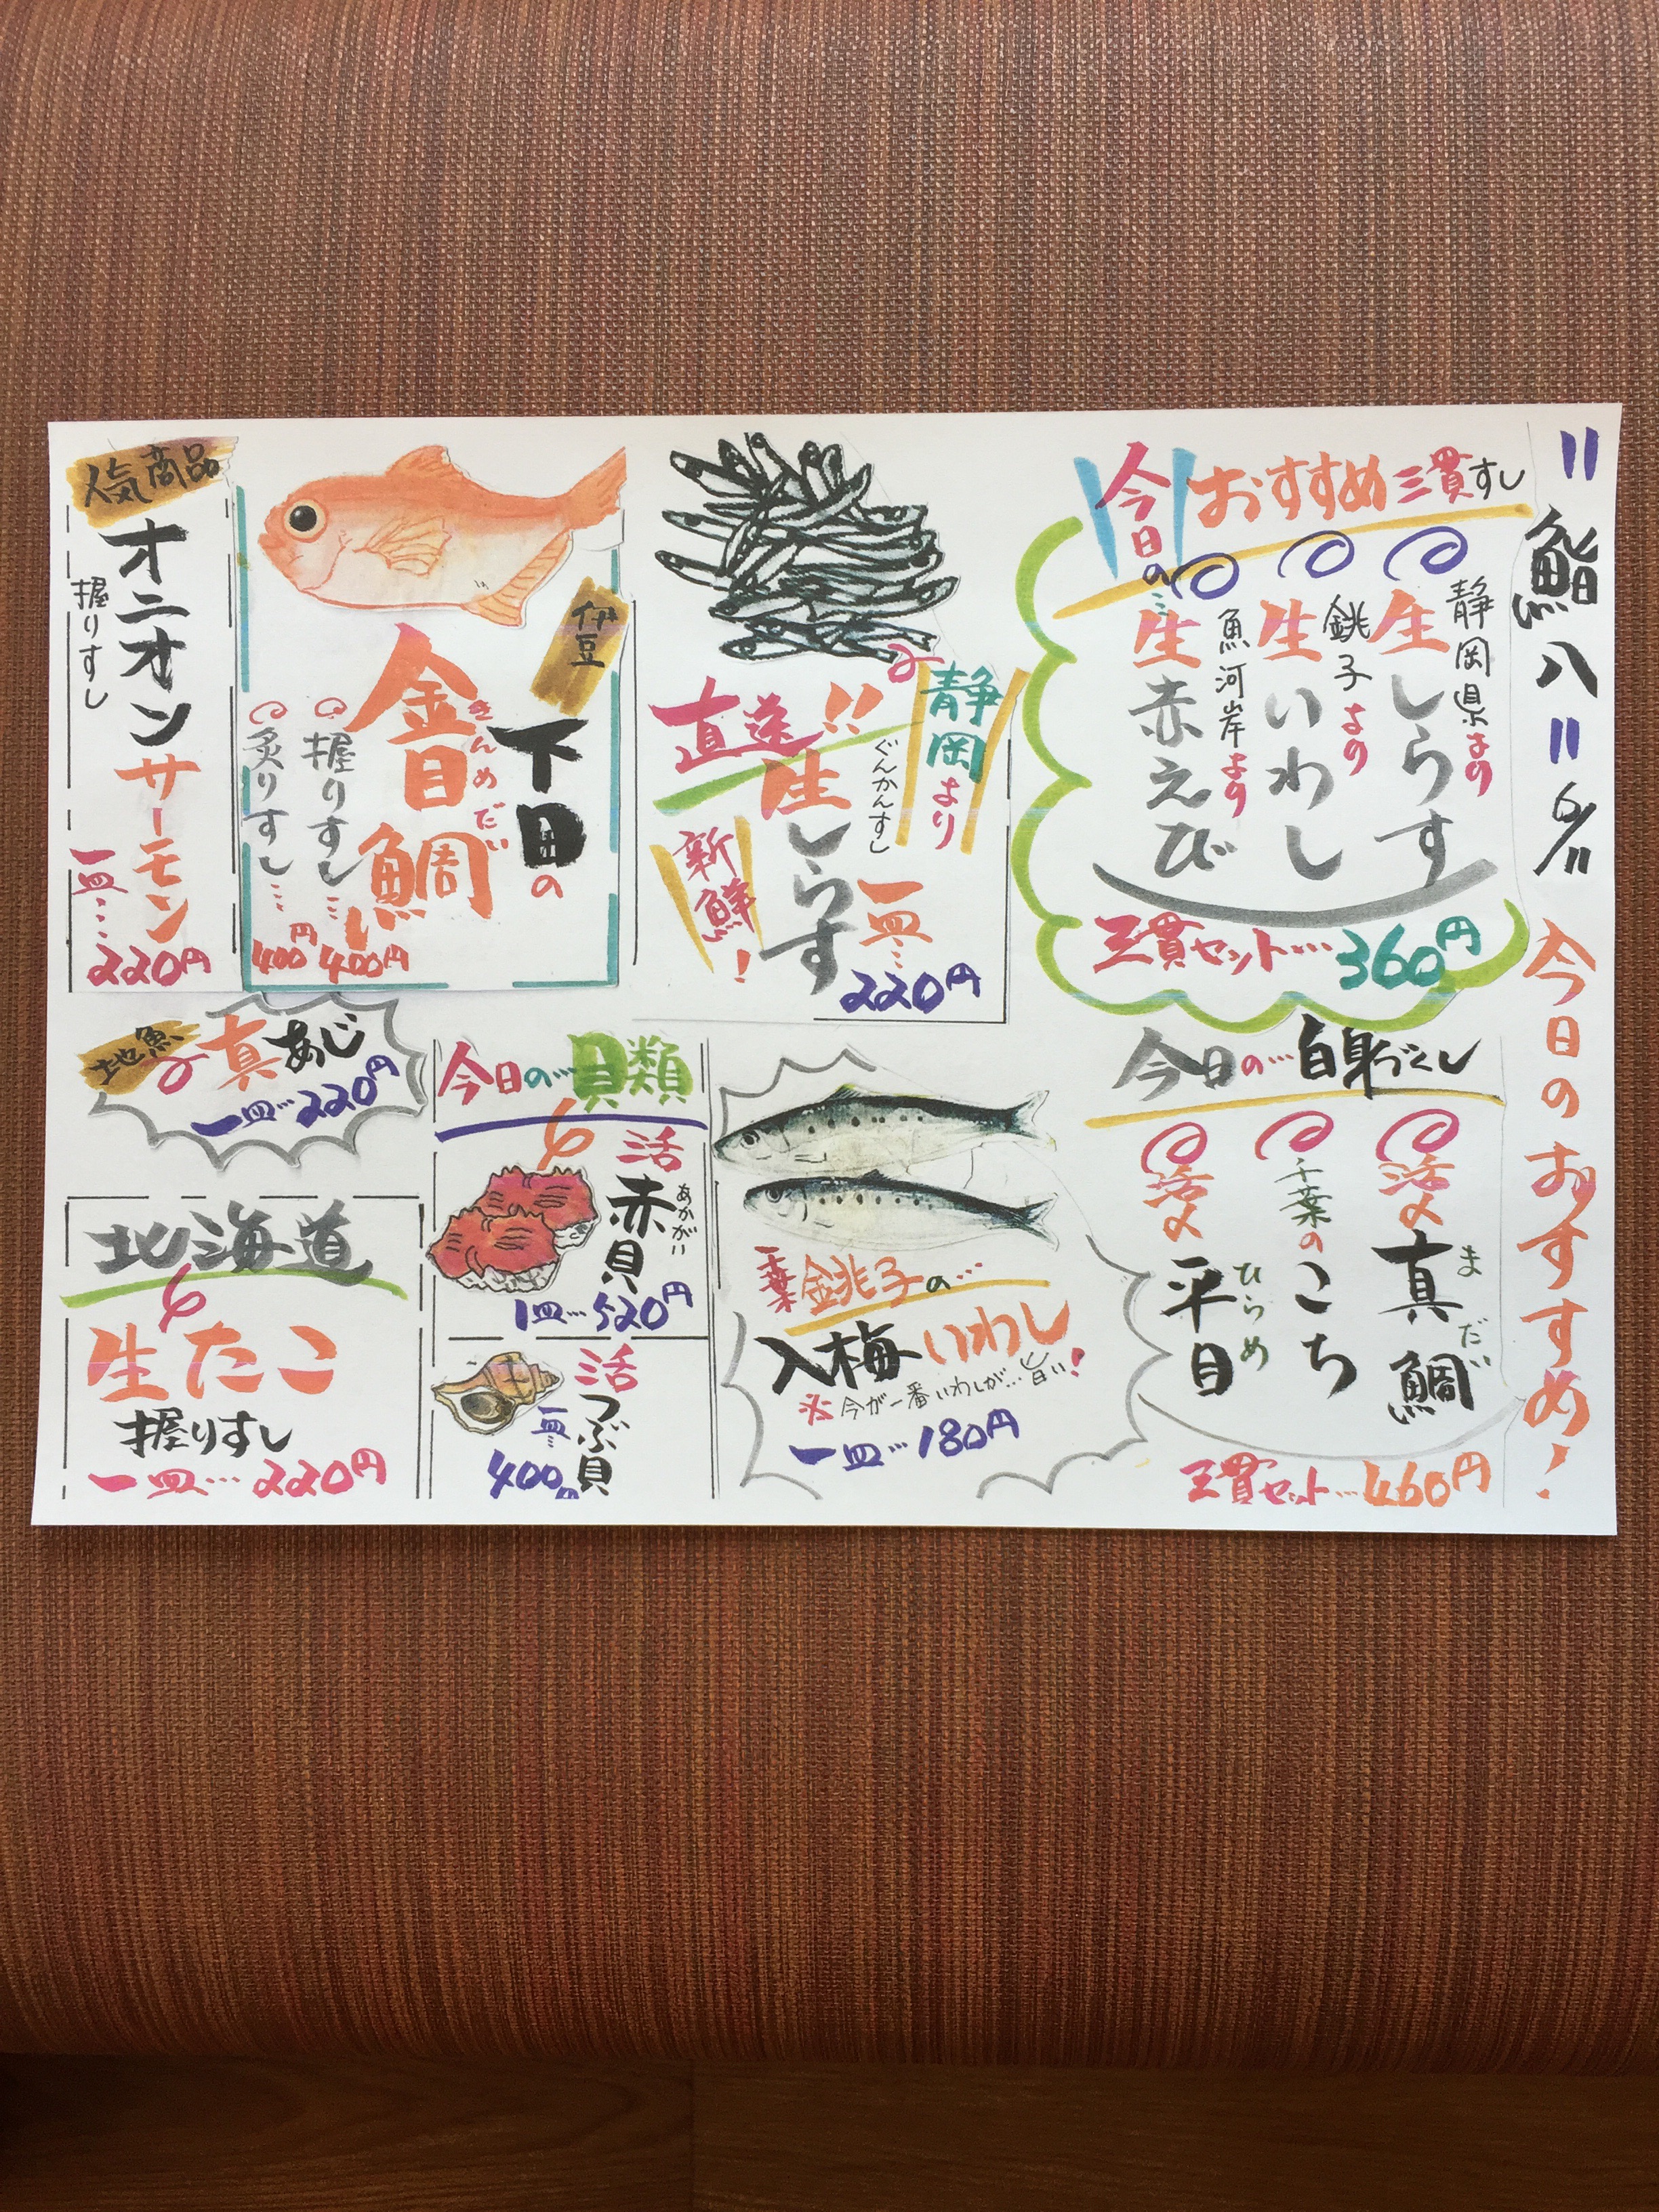 〃鮨八〃 6/11 今日のおすすめ!
今日のおすすめ三貫すし
静岡県より
生しらす
銚子より
生いわし
魚河岸より
生赤えび
三貫セット…360円
静岡より
直送!!
ぐんかんすし
生しらす
新鮮!
一皿…220円
伊豆
下田の
金目鯛
きんめだい
握りすし…400円
炙りすし…400円
人気商品
オニオンサーモン
握りすし
一皿…220円
今日の…白身づくし
活〆真鯛
まだい
千葉のこち
活〆平目
ひらめ
三貫セット…460円
千葉銚子の…
入梅いわし
※今が一番いわしが…旨い!
一皿…180円
今日の…貝類
活赤貝
あかがい
1皿…520円
活つぶ貝
一皿…400円
地魚
真あじ
一皿…220円
北海道
生たこ
握りすし
一皿…220円